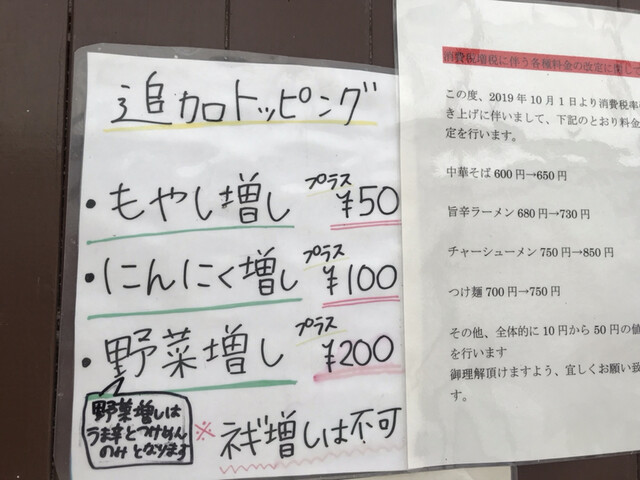 追加トッピング
・もやし増し プラス ¥50
・にんにく増し プラス ¥100
・野菜増し プラス ¥200
野菜増しは
うま辛とつけめん
のみとなります
※ネギ増しは不可
消費税増税に伴う各種料金の改定に関して
この度、2019年10月1日より消費税率
き上げに伴いまして、下記のとおり料金
定を行います。
中華そば 600円→650円
旨辛ラーメン 680円→730円
チャーシューメン 750円→850円
つけ麺 700円→750円
その他、全体的に10円から50円の値
を行います
御理解頂けますよう、宜しくお願い致
す。